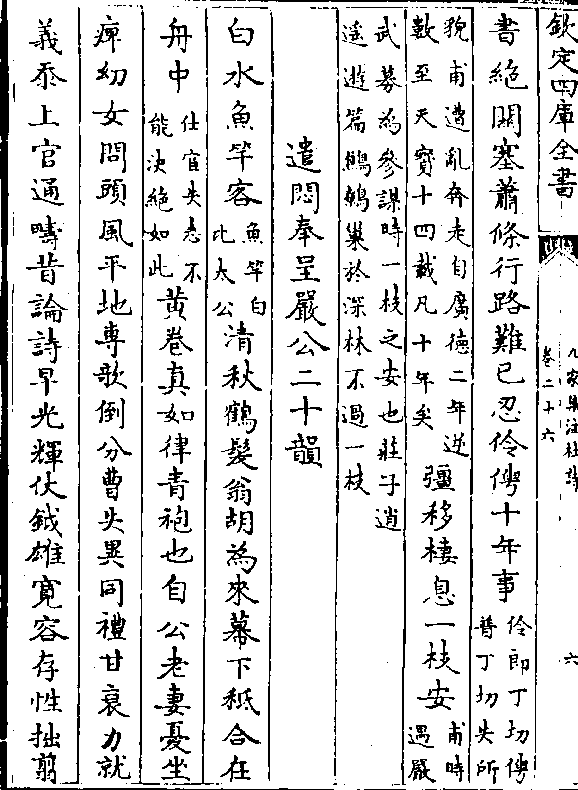 欽定四庫全書
九家集注杜詩
卷二十六
六
書絶關塞蕭條行路難已忍伶俜十年事
伶郎丁切俜
普丁切失所
貌甫遭亂奔走自廣德二年逆
數至天寶十四載凡十年矣
彊移棲息一枝安
甫時
遇嚴
武募為參謀時一枝之安也莊子逍
遥遊篇鷦鷯巢於深林不過一枝
遣悶奉呈嚴公二十韻
白水魚竿客
魚竿白
比太公
清秋鶴髮翁胡為來幕下秪合在
舟中
仕宦失志不
能決絶如此
黄卷真如律青袍也自公老妻憂坐
痺幼女問頭風平地專欹倒分曹失異同禮甘衰力就
義忝上官通疇昔論詩早光輝仗鉞雄寛容存性拙剪